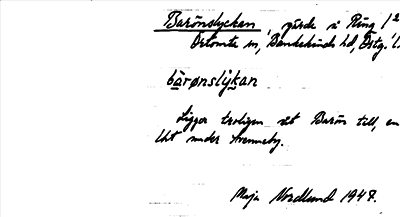 Barönslyckan, gärde i Ring
Örtomta sn, Bankekinds hd, Östg. l.
bàrønslỳkan
Ligger troligen åt Barön till, en
lht under Avenneby.
Maja Nordlund 1947.